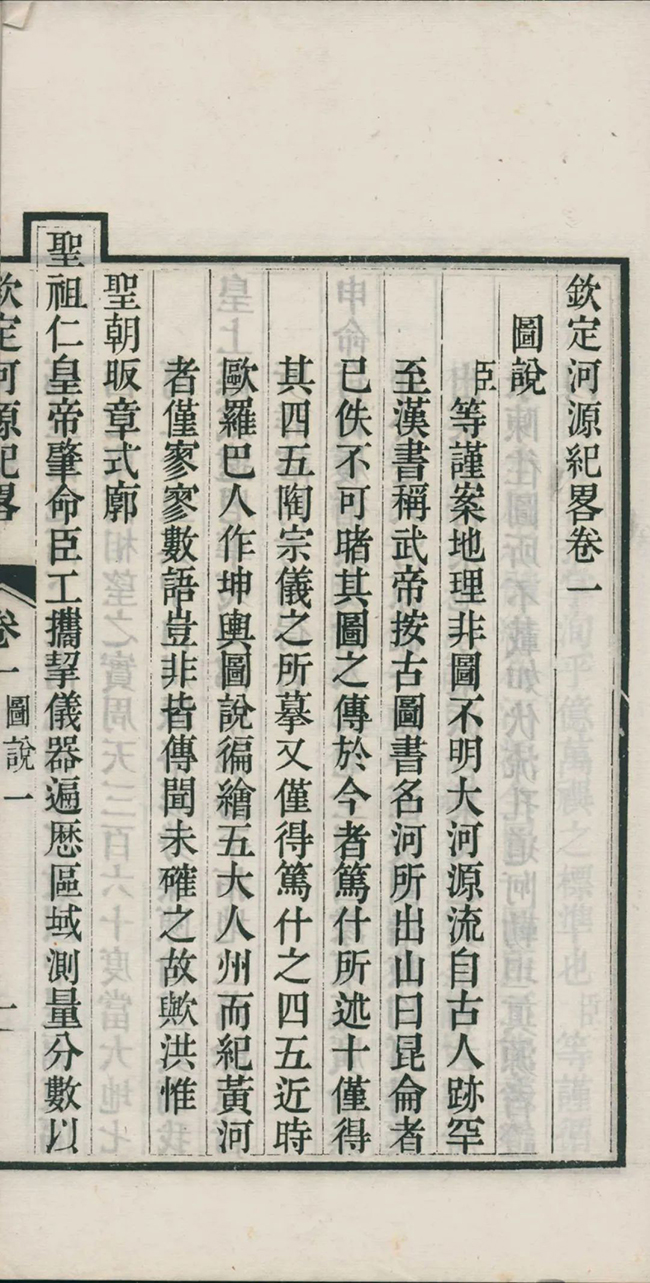 欽定河源紀畧卷一
圖說
臣等謹案地理非圖不明大河源流自古人跡罕
至漢書稱武帝按古圖書名河所出山曰昆侖者
已佚不可睹其圖之傳於今者篤什所述十僅得
其四五陶宗儀之所摹又僅得篤什之四五近時
歐羅巴人作坤輿圖說徧繪五大人州而紀黃河
者僅寥寥數語豈非皆傳聞未確之故歟洪惟
聖朝昄章式廓
聖祖仁皇帝肇命臣工攜挈儀器遍歷區域測量分數以
欽定河源紀畧 卷一 圖說一 一